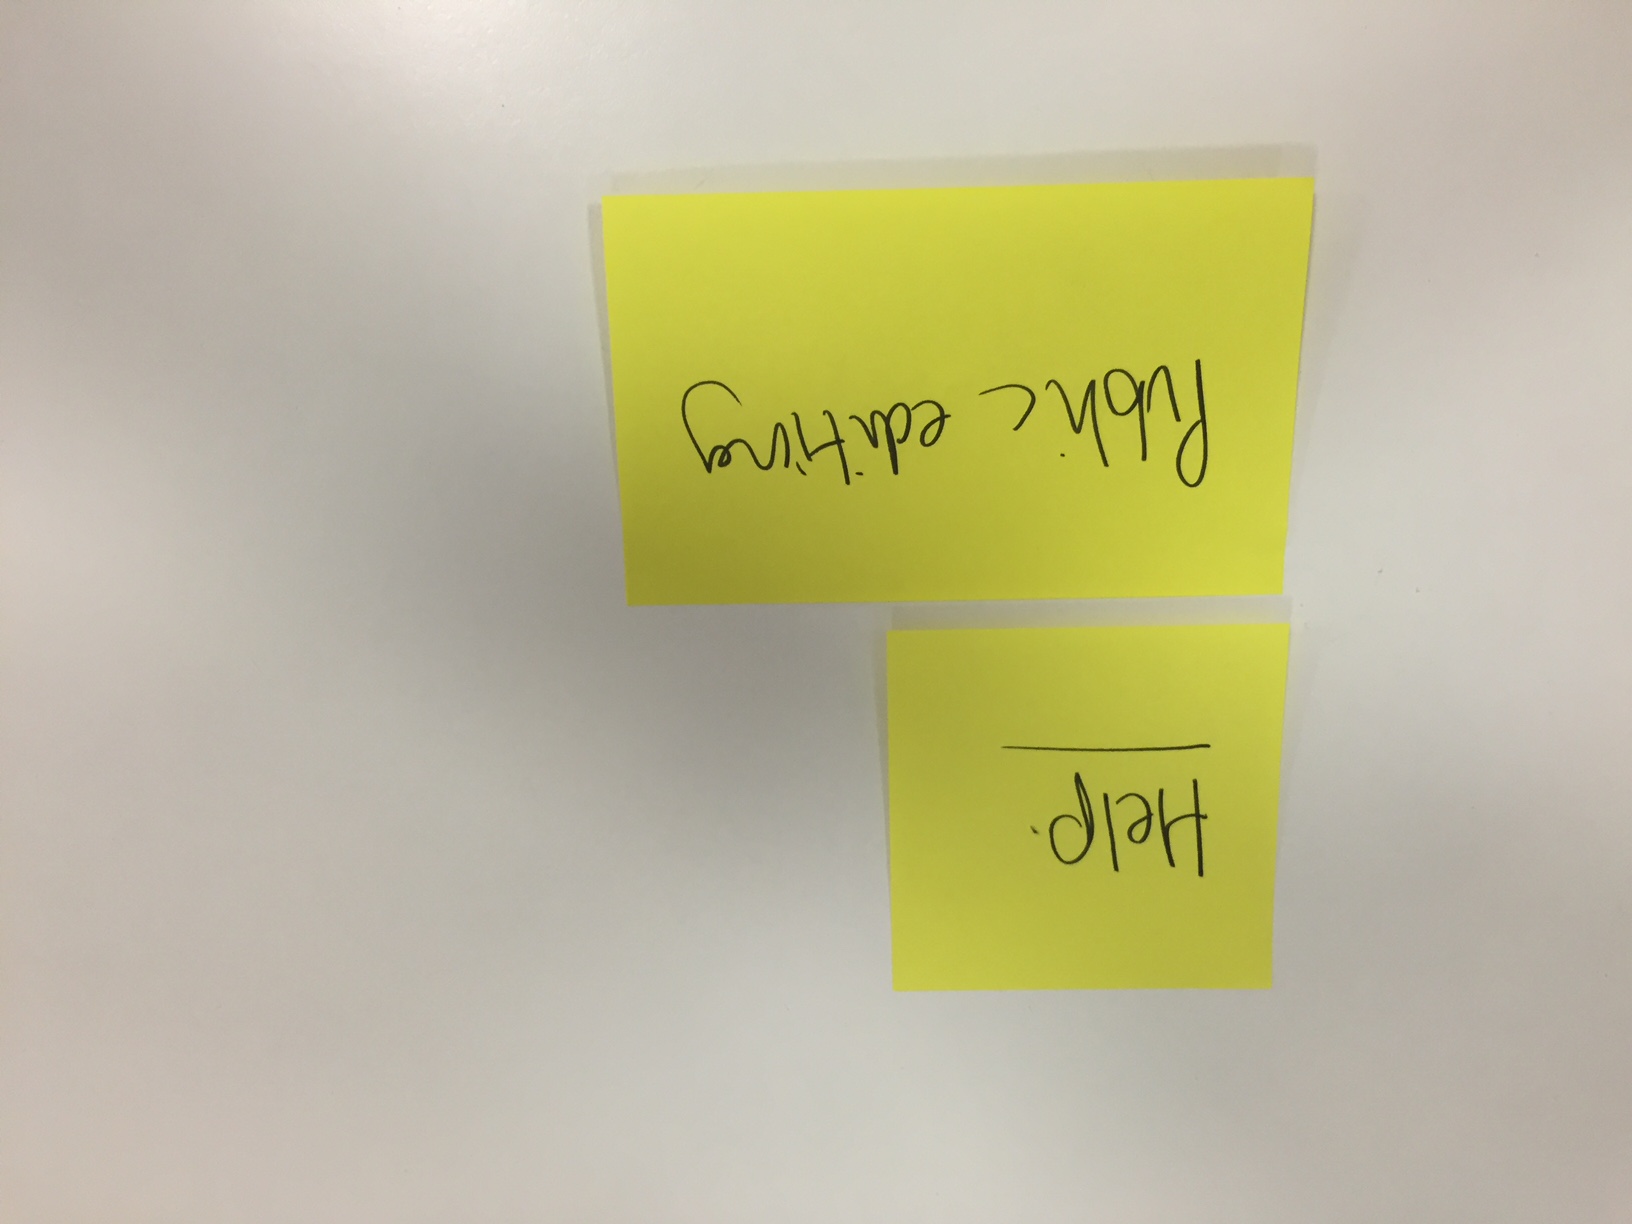 Help.
Public editing